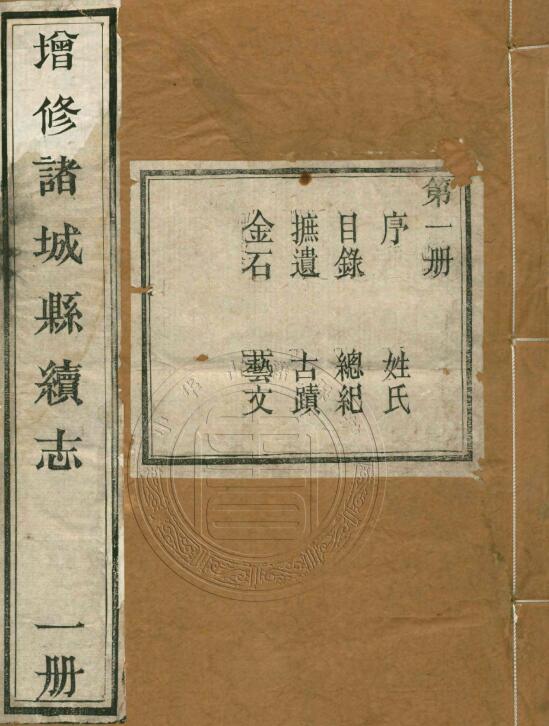 增修諸城縣續志 一册
第一册
序 姓氏
目錄 總紀
摭遺 古蹟
金石 藝文